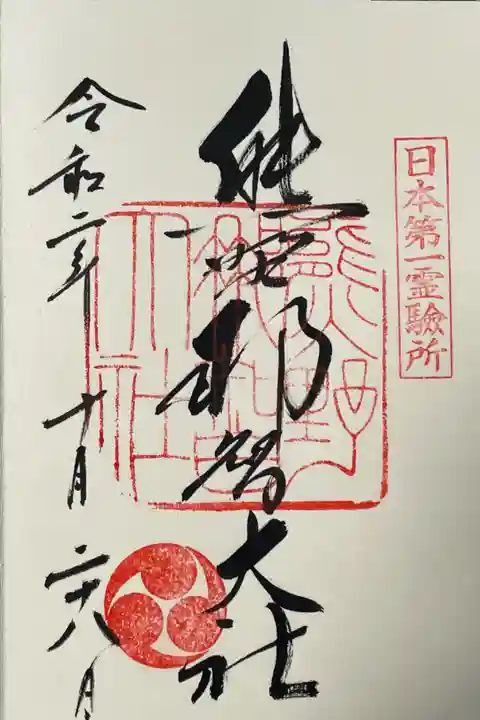 日本第一霊驗所
熊野那智大社
熊野
那智
大社
令和二年十月二十八日